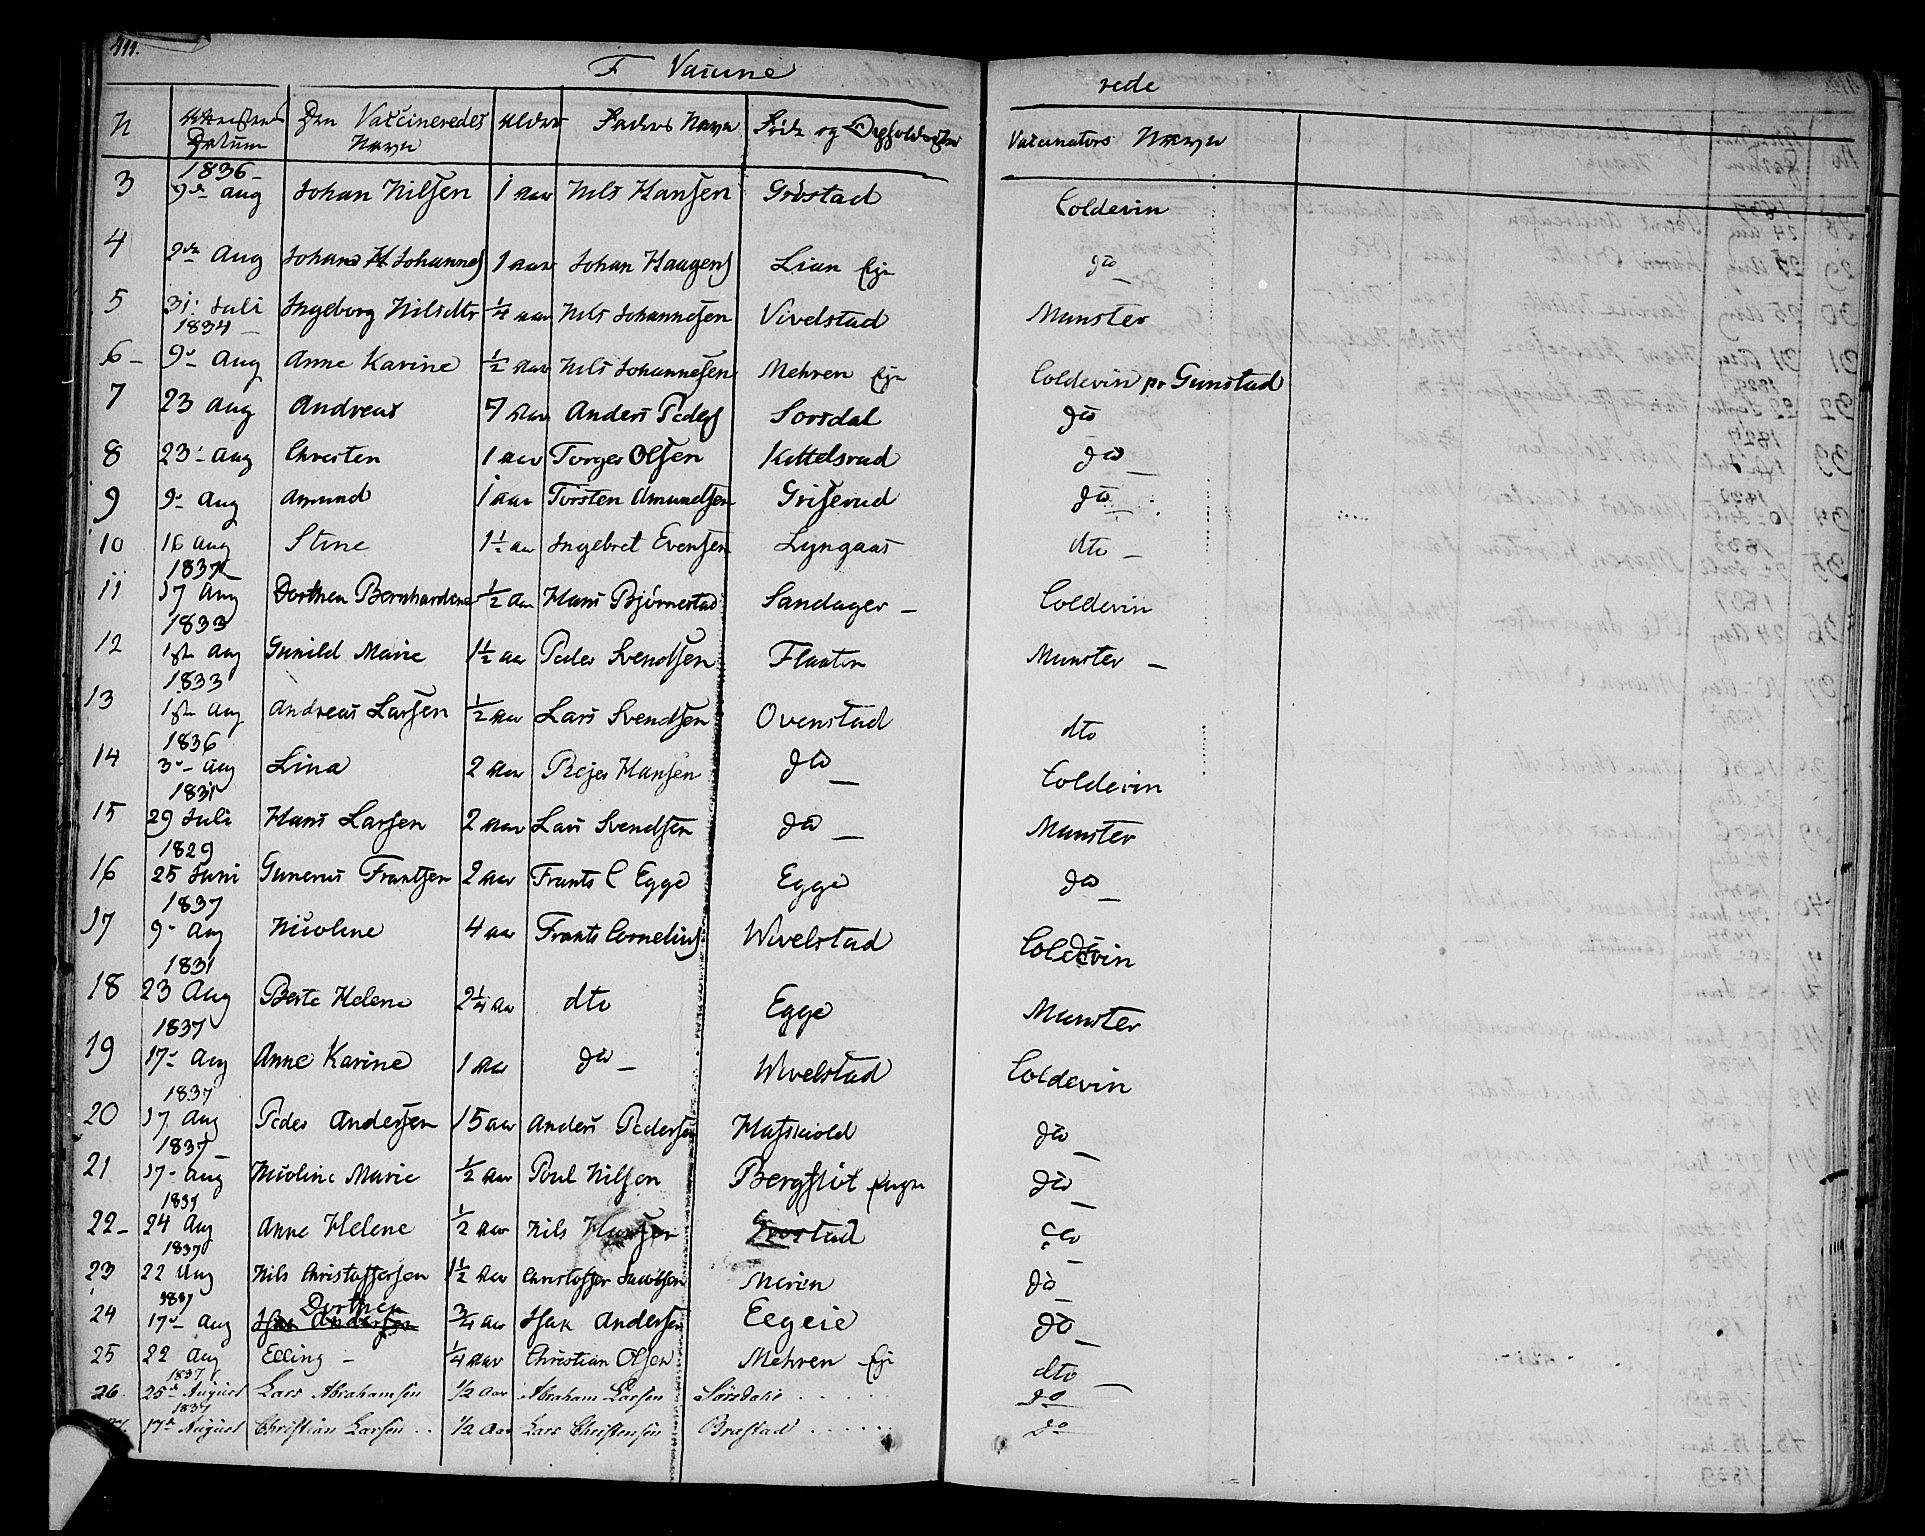 411.
F Vaccine rede
N Attestens Datum Den Vaccineredes Navn Alder Faders Navn Føde og Opholdssted Vaccinators Navn
1836
3 9de Aug Johan Nilsen 1 aar Nils Hansen Gröstad Coldevin
4 2den Aug Johan H Johannes 1 aar Johan Haagens Lian Eje do
5 31 Juli Ingeborg Nilsdtr 1/4 aar Nils Johannesen Vivelstad Munster
1834
6 9de Aug Anne Karine 1/2 aar Nils Johannesen Mehren Eje Coldevin pr Gunstad
7 23 Aug Andreas 7 aar Anders Peders Sorsdal do
8 23 Aug Christen 1 aar Torger Olsen Kittelsrud do
9 9 Aug Amund 1 aar Torsten Amundsen Griserud do
10 16 Aug Stine 1 1/2 aar Ingebret Evensen Lyngaas dto
1837
11 17 Aug Dorthea Bernhardine 1/2 aar Hans Bjørnestad Sandager Coldevin
1833
12 1ste Aug Gunild Marie 1 1/2 aar Peder Svendsen Flaaten Munster
1833
13 1ste Aug Andreas Larsen 1/2 aar Lars Svendsen Ovenstad dto
1836
14 3 Aug Lina 2 aar Rejer Hansen do Coldevin
1831
15 29 Juli Hans Larsen 2 aar Lars Svendsen do Munster
1829
16 25 Juni Gunerus Frantsen 2 aar Frants C Egge Egge do
1837
17 9 Aug Nicoline 4 aar Frants Cornelius Wivelstad Coldevin
1831
18 23 Aug Berte Helene 2 1/4 aar dto Egge Munster
1837
19 17 Aug Anne Karine 1 aar do Wivelstad Coldevin
1837
20 17 Aug Peder Andersen 15 aar Anders Pedersen Hafskiold do
1837
21 17 Aug Nicoline Marie 1/2 aar Poul Nilsen Bergfløt do
1837
22 24 Aug Anne Helene 1/2 aar Nils Hansen Grostad do
1837
23 22 Aug Nils Christoffersen 1 1/2 aar Christoffer Meren do
1837 Dorthea
24 17 Aug Isak Andersen 3/4 aar Isak Andersen Eegeie do
25 22 Aug Elling 1/4 aar Christian Olsen Mehren Eje dto
1837
26 25de August Lars Abrahamsen 1/2 aar Abraham Larsen Sørsdahl do
1837
27. 17de August Christian Larsen 1/2 Aar Lars Christensen Brastad do